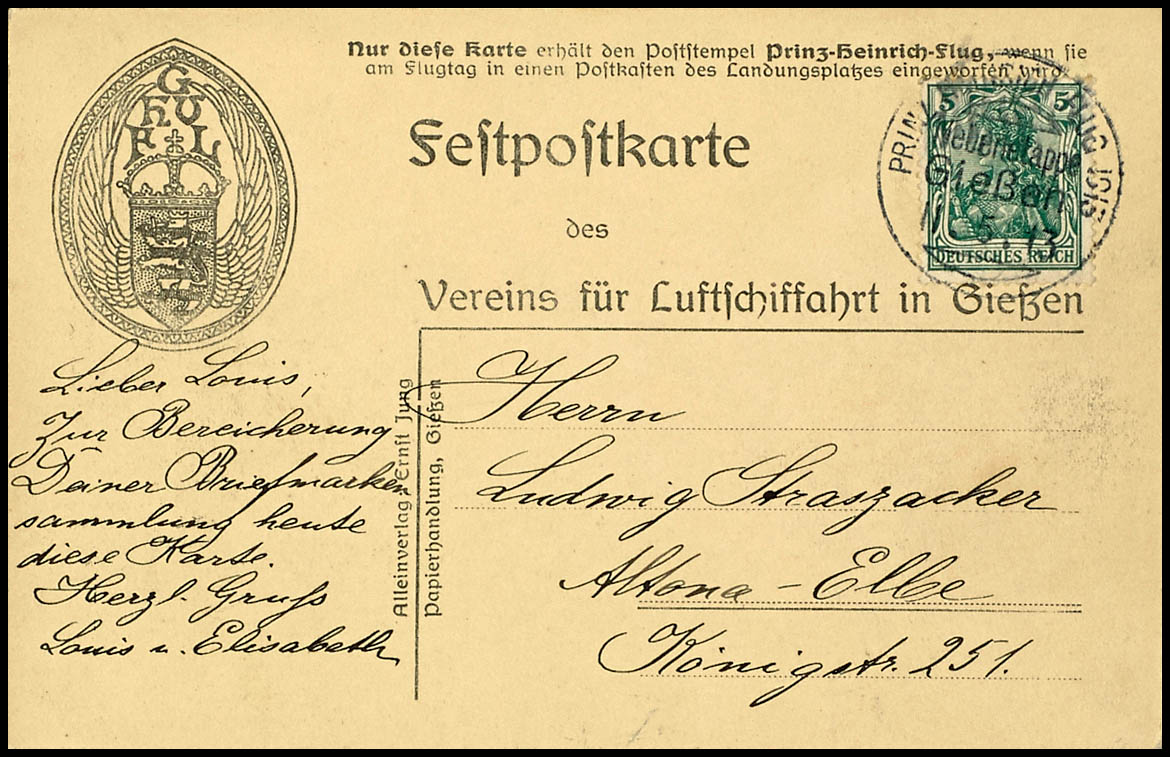 Nur diese Karte erhält den Poststempel Prinz-Heinrich-Flug, wenn sie
am Flugtag in einen Postkasten des Landungsplatzes eingeworfen wird.
G
H V
F L
Festpostkarte
des
Vereins für Luftschiffahrt in Gießen
5 5
DEUTSCHES REICH
PRINZ HEINRICH FLUG 1913
Nebenetappe
Gießen
11. 5. 13
Lieber Louis,
Zur Bereicherung
Deiner Briefmarken
sammlung heute
diese Karte.
Herzl. Gruss
Louis u. Elisabeth
Alleinverlag Ernst Jung
Papierhandlung, Gießen
Herrn
Ludwig Straszacker
Altona-Elbe
Königstr. 251.